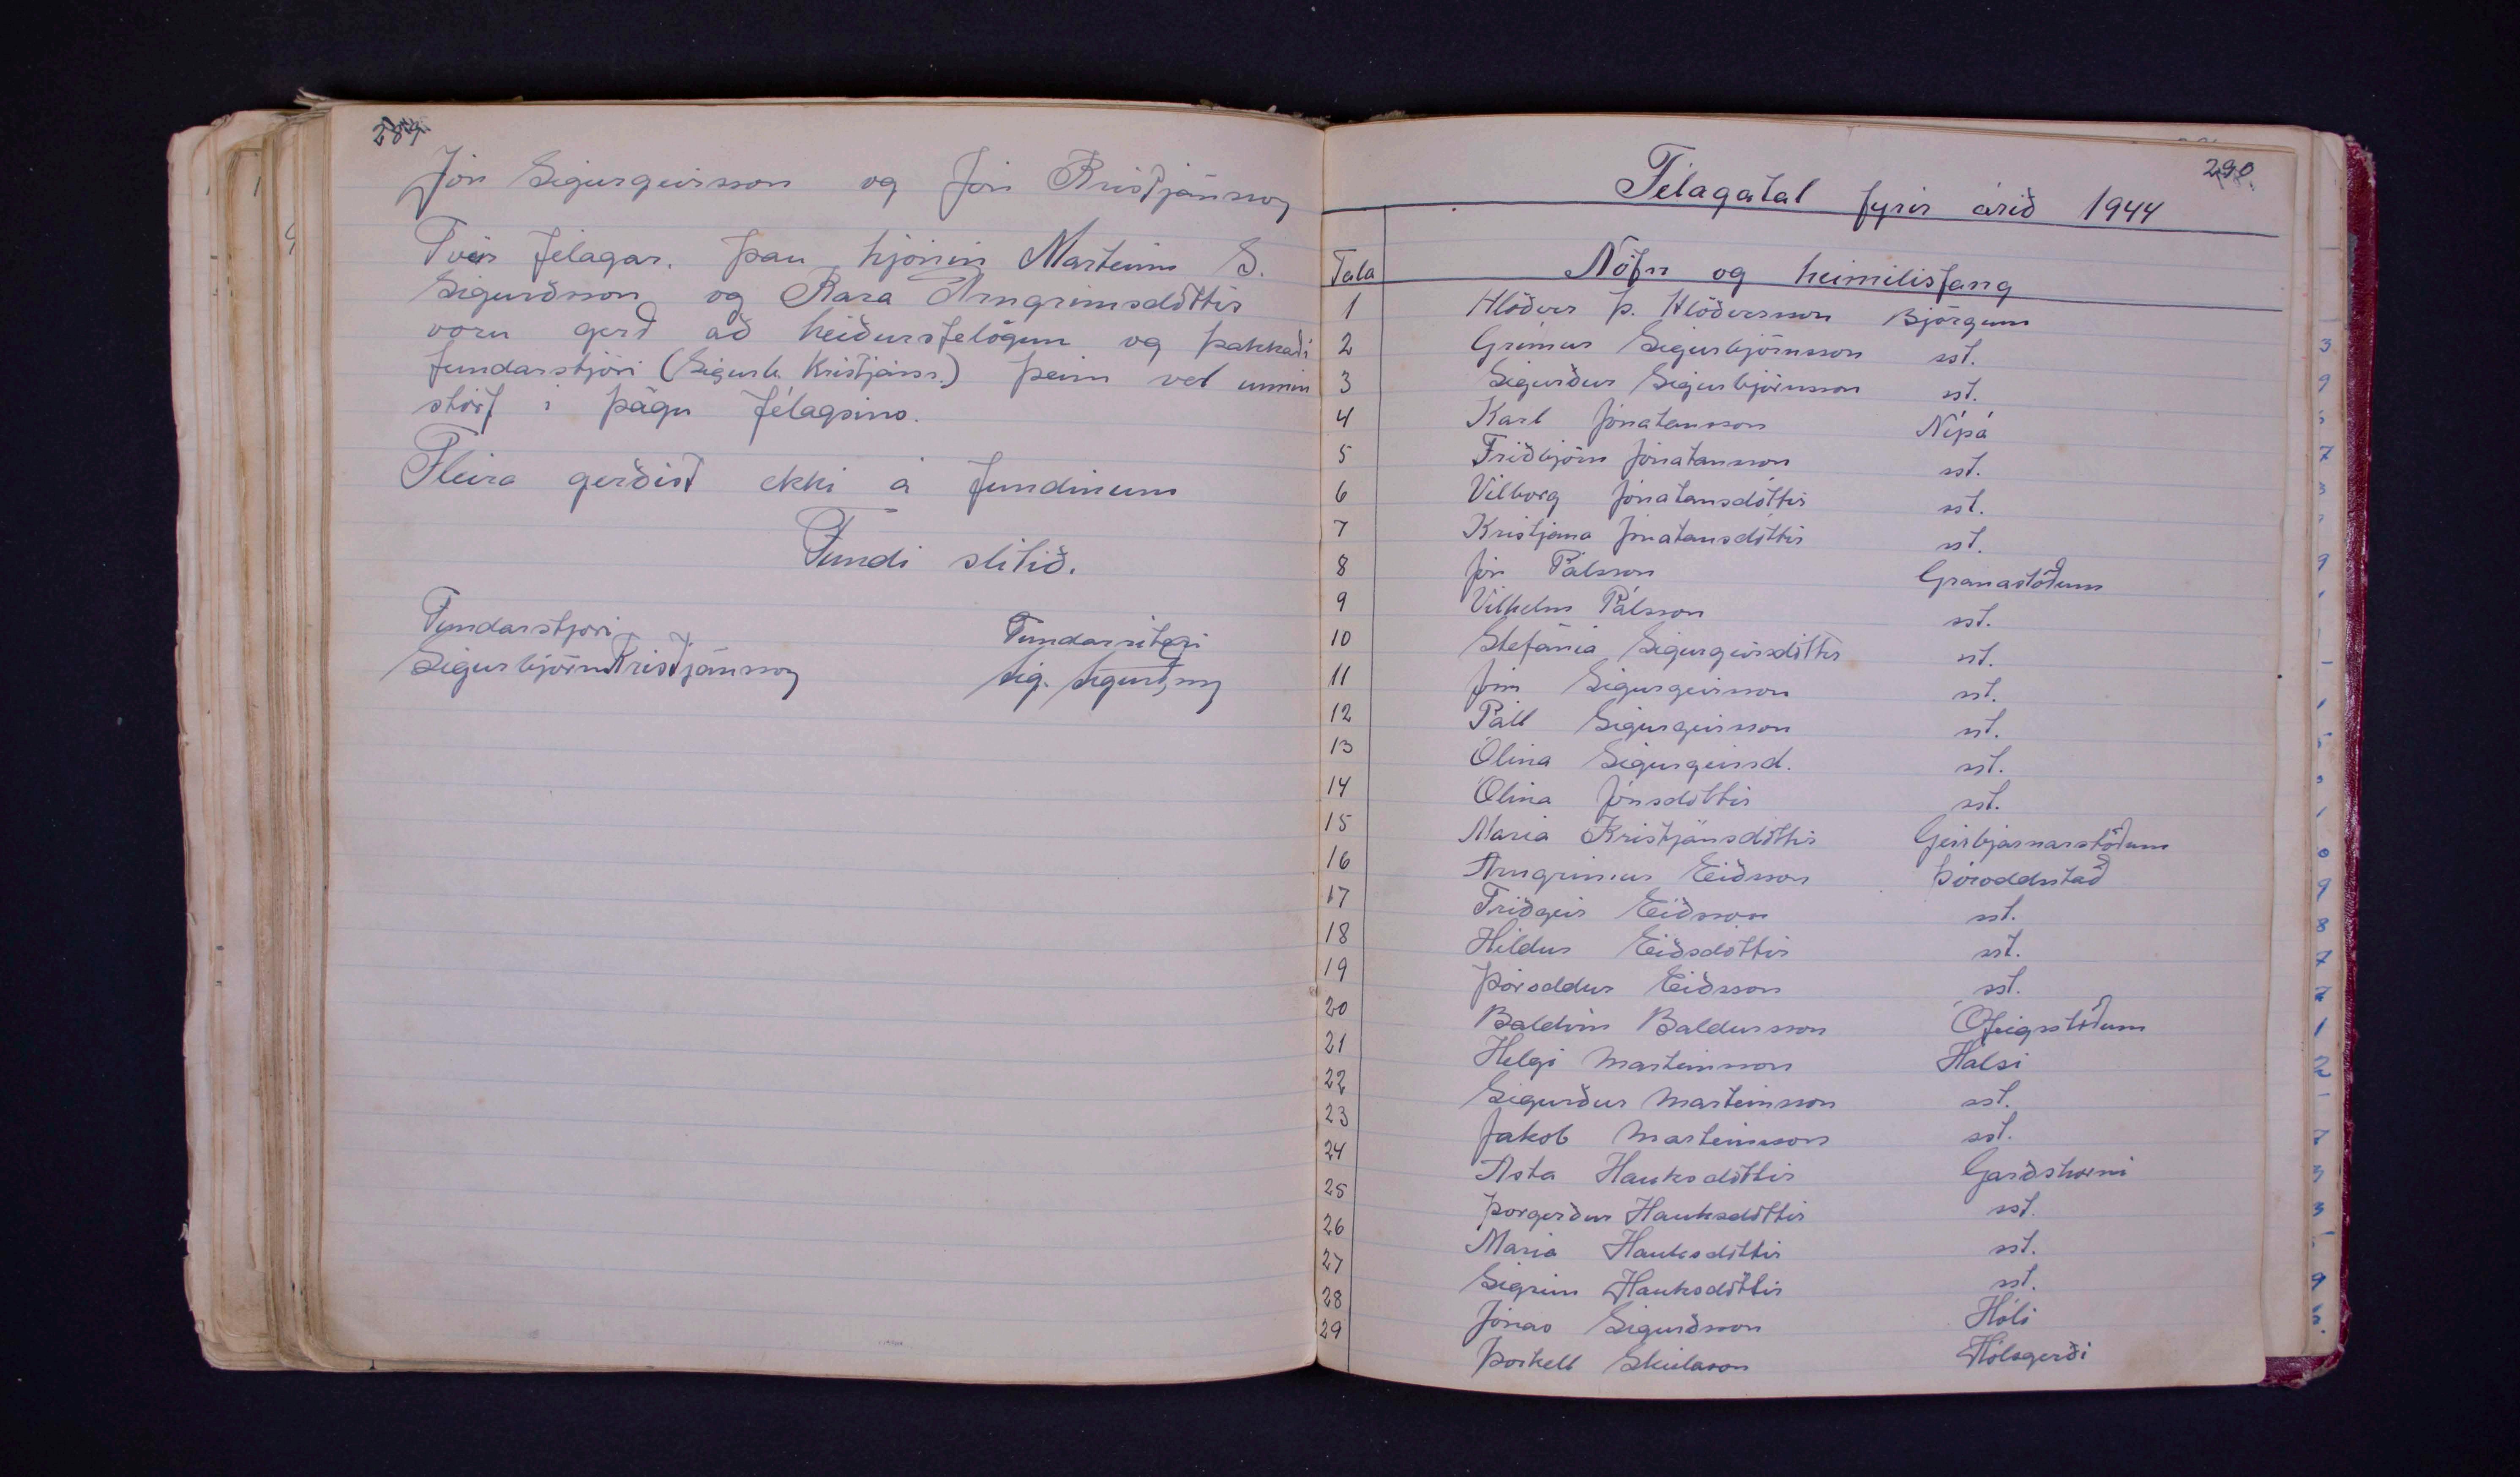 289.
Jón Sigurgeirsson og Jón Kristjánsson
Tveir félagar, þau hjónin Marteinn S.
Sigurðsson og Kara Arngrímsdóttir
voru gerð að heiðursfélögum og þakkaði
fundarstjóri (Sigurb. Kristjánss.) þeim vel unnin
störf í þágu félagsins.
Fleira gerðist ekki á fundinum
Fundi slitið.
Fundarstjóri Fundarritari
Sigurbjörn Kristjánsson Sig. Sigurðsson
290
Félagatal fyrir árið 1944
Tala Nöfn og heimilisfang
1 Hlöðver Þ. Hlöðversson Björgum
2 Grímur Sigurbjörnsson sst.
3 Sigurður Sigurbjörnsson sst.
4 Karl Jónatansson Nípá
5 Friðbjörn Jónatansson sst.
6 Vilborg Jónatansdóttir sst.
7 Kristjana Jónatansdóttir sst.
8 Jón Pálsson Granastöðum
9 Vilhelm Pálsson sst.
10 Stefanía Sigurgeirsdóttir sst.
11 Jón Sigurgeirsson sst.
12 Páll Sigurgeirsson sst.
13 Ólína Sigurgeirsd. sst.
14 Ólína Jónsdóttir sst.
15 María Kristjánsdóttir Geirbjarnarstöðum
16 Arngrímur Eiðsson Þóroddstað
17 Friðgeir Eiðsson sst.
18 Hildur Eiðsdóttir sst.
19 Þóroddur Eiðsson sst.
20 Baldvin Baldursson Ófeigsstöðum
21 Helgi Marteinsson Hálsi
22 Sigurður Marteinsson sst.
23 Jakob Marteinsson sst.
24 Ásta Hauksdóttir Garðshorni
25 Þorgerður Hauksdóttir sst.
26 María Hauksdóttir sst.
27 Sigrún Hauksdóttir sst.
28 Jónas Sigurðsson Hóli
29 Þorkell Skúlason Hólsgerði